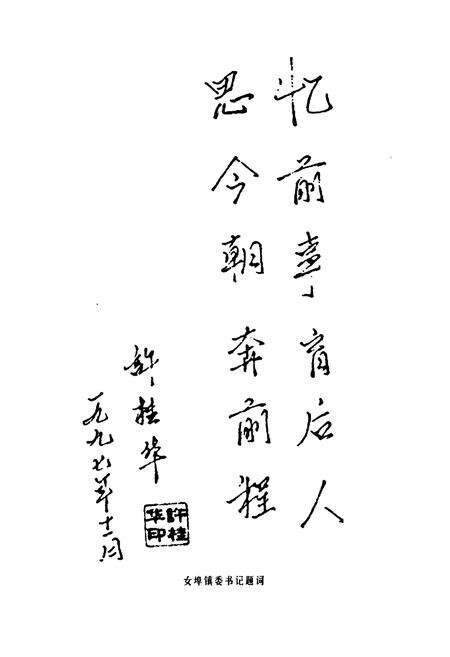 忆前事育后人
思今朝奔前程
许桂华
一九九七年十二月
許桂
华印
女埠镇委书记题词